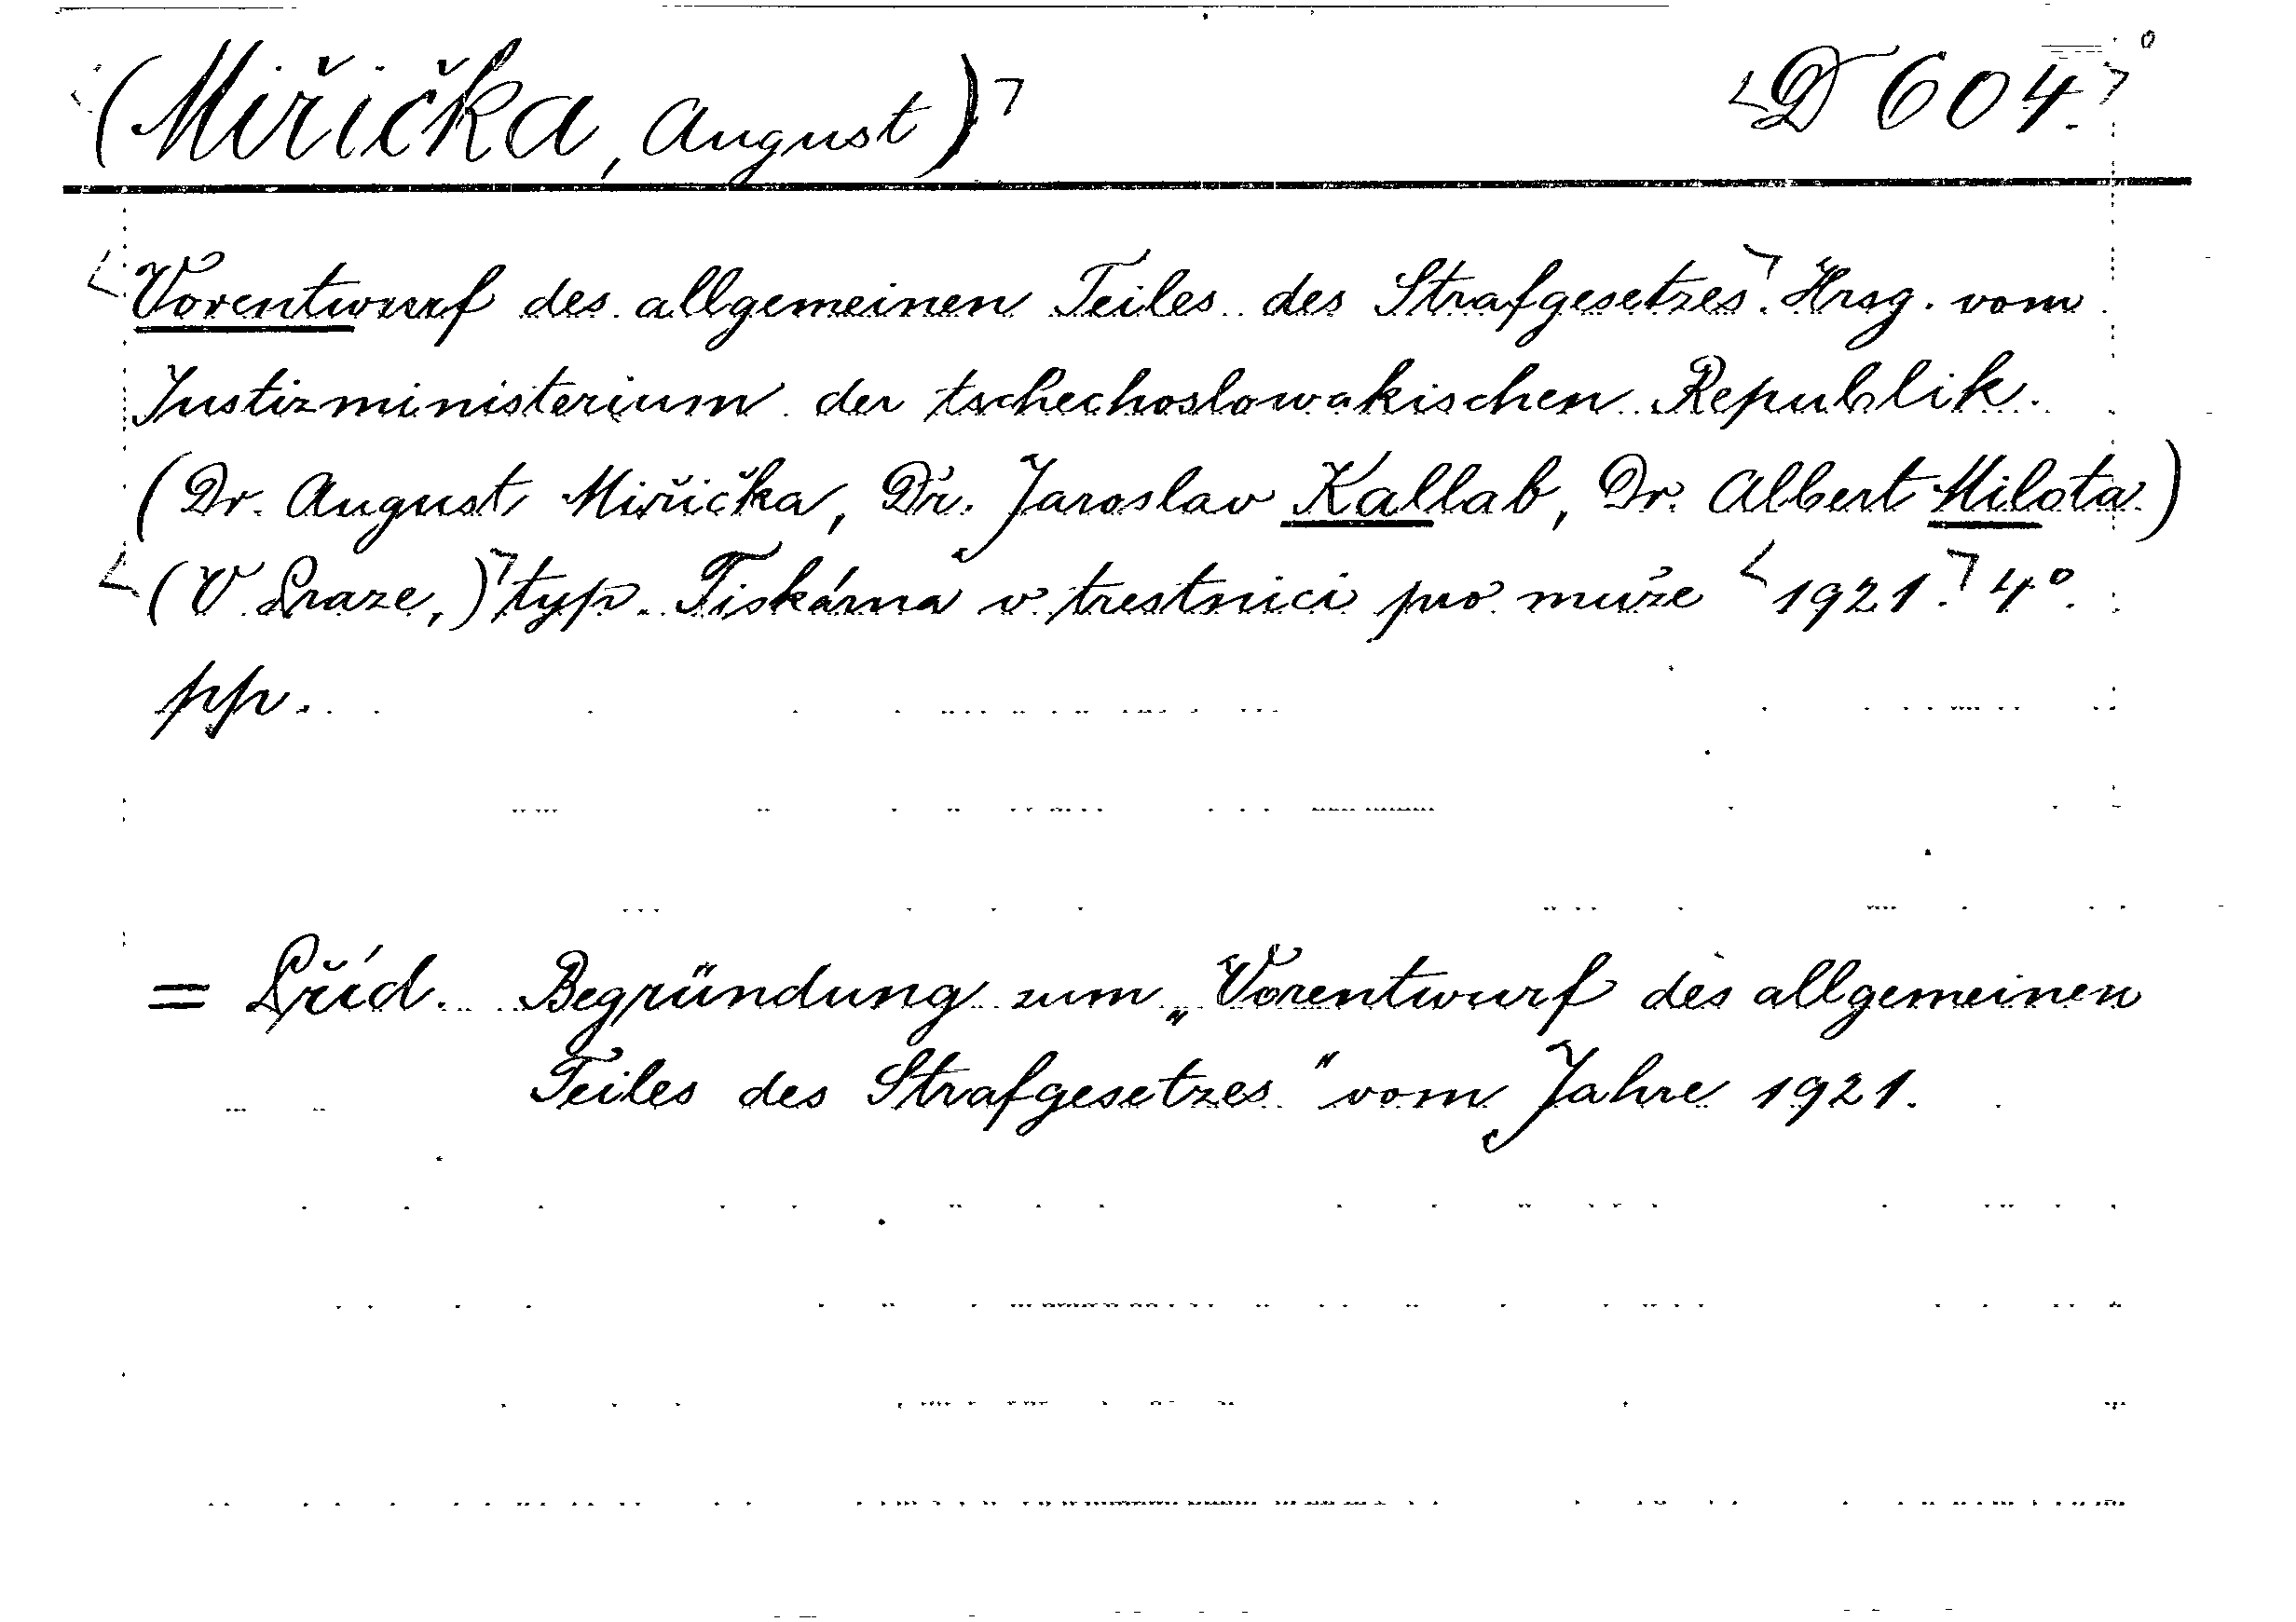 (Miřička, August) D 604.
Vorentwurf des allgemeinen Teiles des Strafgesetzes. Hrsg. vom
Justizministerium der tschechoslowakischen Republik.
(Dr. August Miřička, Dr. Jaroslav Kallab, Dr. Albert Milota)
(V Praze,) typ. Tiskárna v trestnici pro muže 1921. 4°.
pp.
= Příd. Begründung zum „Vorentwurf des allgemeinen
Teiles des Strafgesetzes" vom Jahre 1921.